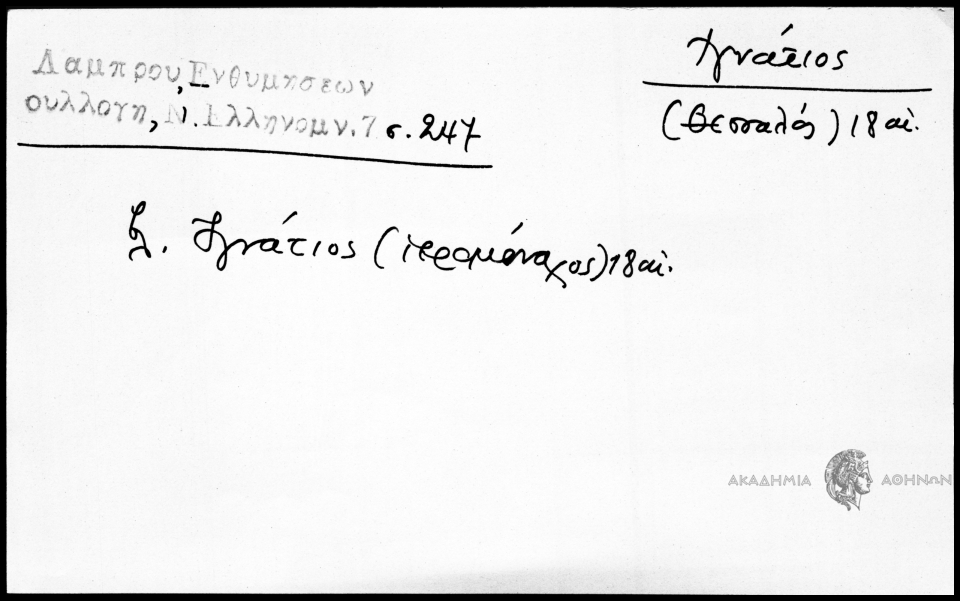 Λαμπρου, Ενθυμησεων
συλλογη, Ν. Ελληνομν. 7 σ. 247
Ἰγνάτιος
(Θεσσαλός) 18 αἰ.
βλ. Ἰγνάτιος (ἱερομόναχος) 18 αἰ.
ΑΚΑΔΗΜΙΑ ΑΘΗΝΩΝ